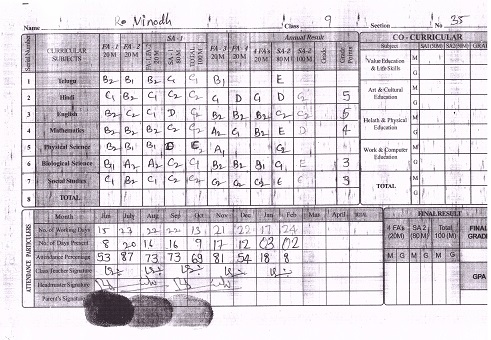 Name K. Vinodh Class 9 Section No 35
Serial Number CURRICULAR SUBJECTS FA-1 20 M FA-2 20 M FA-1,2 20 M SA-1 80 M TOTAL 100 M FA-3 20 M FA-4 20 M 4 FA's 20 M SA-2 80 M Grade Grade Points
SA-1 Annual Result
1 Telugu B2 B1 B2 C1 C1 B1 E
2 Hindi C1 B2 C1 C2 C2 G D G D 5
3 English B2 C2 C1 D B2 B2 B2 C2 C2 5
4 Mathematics B2 B1 B2 C2 C2 A2 G B2 E D 4
5 Physical Science B2 B1 B1 A1 C2
6 Biological Science B1 A2 A2 C2 B2 B2 B1 G E 3
7 Social Studies C1 B2 C1 C2 C2 C2 C2 3
8 TOTAL
CO - CURRICULAR
Subject SA1(50M) SA2(50M)
Value Education & Life Skills M G
Art & Cultural Education M G
Helath & Physical Education M G
Work & Computer Education M G
TOTAL M G
ATTENDANCE PARTICULERS
Month Jun July Aug Sep Oct Nov Dec Jan Feb Mar April
No. of Working Days 15 23 22 22 13 21 22 17 24
No. of Days Present 8 20 16 16 9 17 12 03 02
Attendance Percentage 53 87 73 73 69 81 54 18 8
Class Teacher Signature
Headmaster Signature
Parent's Signature
FINAL RESULT
4 FA's (20M) SA 2 (80 M) Total 100 (M) FINAL GRADE
M G M G M G
GPA